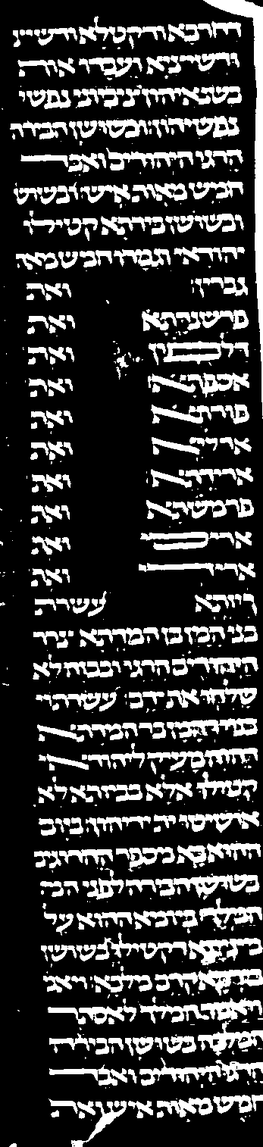 וחורבא ודקטלא ושיצי
ודשיציא ועבדו
בשנאיהון ציביוני נפשי
נפשיהון ובשושן הבירה
הרגו היהודים ואב
חמש מאות איש ובשוש
ובשושן בירתא קטילו
יהודאי וגמרו חמש מאו
גברין ואת
פרשנדתא ואת
דלפון ואת
אספתא ואת
פורתא ואת
אדליא ואת
ארידתא ואת
פרמשתא ואת
ארי ואת
ארידי ואת
ויזתא עשרת
בני המן בן המדתא צרר
היהודים הרגו ובבזה לא
שלחו את ידם עשרתי
בנוי דהמן בר המדתא
דהוה מעיק ליהודא
קטילו אלא בביזתא לא
אושיטו ית ידיהון ביום
ההוא בא מספר ההרוגים
בשושן הבירה לפני המ
המלך ביומא ההוא על
דקטילו בשושן
קדם מלכא ויאמ
ויאמר המלך לאסת
המלכה בשושן הבירה
הרגו היהודים ואב
חמש מאות איש ואת